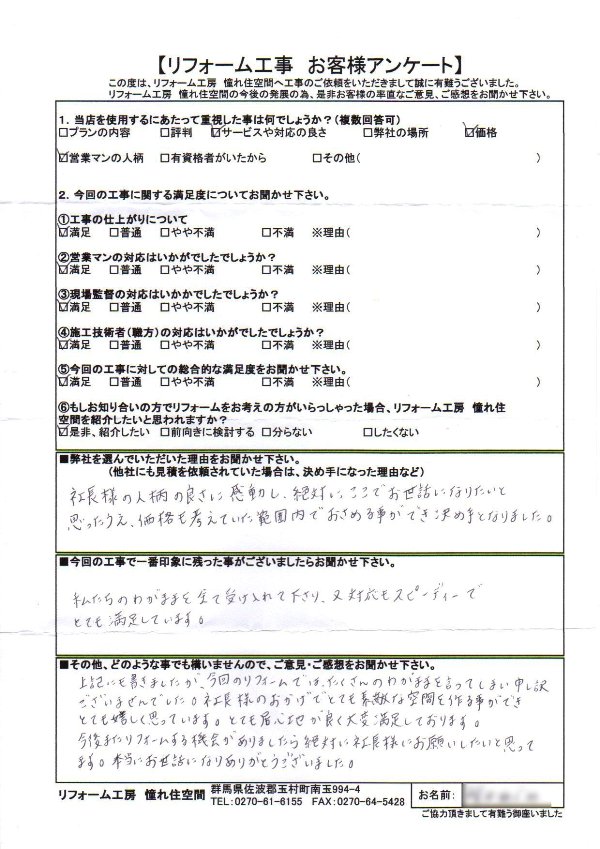 【リフォーム工事　お客様アンケート】
この度は、リフォーム工房　憧れ住空間へ工事のご依頼をいただきまして誠に有難うございました。
リフォーム工房　憧れ住空間の今後の発展の為、是非お客様の率直なご意見、ご感想をお聞かせ下さい。
1．当店を使用するにあたって重視した事は何でしょうか？（複数回答可）
□プランの内容　□評判　☑サービスや対応の良さ　□弊社の場所　☑価格
☑営業マンの人柄　□有資格者がいたから　□その他（　）
2．今回の工事に関する満足度についてお聞かせ下さい。
①工事の仕上がりについて
☑満足　□普通　□やや不満　□不満　※理由（　）
②営業マンの対応はいかがでしたでしょうか？
☑満足　□普通　□やや不満　□不満　※理由（　）
③現場監督の対応はいかかでしたでしょうか？
☑満足　□普通　□やや不満　□不満　※理由（　）
④施工技術者（職方）の対応はいかがでしたでしょうか？
☑満足　□普通　□やや不満　□不満　※理由（　）
⑤今回の工事に対しての総合的な満足度をお聞かせ下さい。
☑満足　□普通　□やや不満　□不満　※理由（　）
⑥もしお知り合いの方でリフォームをお考えの方がいらっしゃった場合、リフォーム工房　憧れ住
空間を紹介したいと思われますか？
☑是非、紹介したい　□前向きに検討する　□分らない　□したくない
■弊社を選んでいただいた理由をお聞かせ下さい。
（他社にも見積を依頼されていた場合は、決め手になった理由など）
社長様の人柄の良さに感動し、絶対にここでお世話になりたいと
思ったうえ、価格も考えていた範囲内でおさめる事ができ決め手となりました。
■今回の工事で一番印象に残った事がございましたらお聞かせ下さい。
私たちのわがままを全て受け入れて下さり、又対応もスピーディーで
とても満足しています。
■その他、どのような事でも構いませんので、ご意見・ご感想をお聞かせ下さい。
上記にも書きましたが、今回のリフォームでは、たくさんのわがままを言ってしまい申し訳
ございませんでした。社長様のおかげでとても素敵な空間を作る事ができ
とても嬉しく思っています。とても居心地が良く大変満足しております。
今後またリフォームする機会がありましたら絶対に社長様にお願いしたいと思って
ます。本当にお世話になりありがとうございました。
リフォーム工房　憧れ住空間　群馬県佐波郡玉村町南玉994-4
TEL：0270-61-6155　FAX：0270-64-5428
お名前：
ご協力頂きまして有難う御座いました